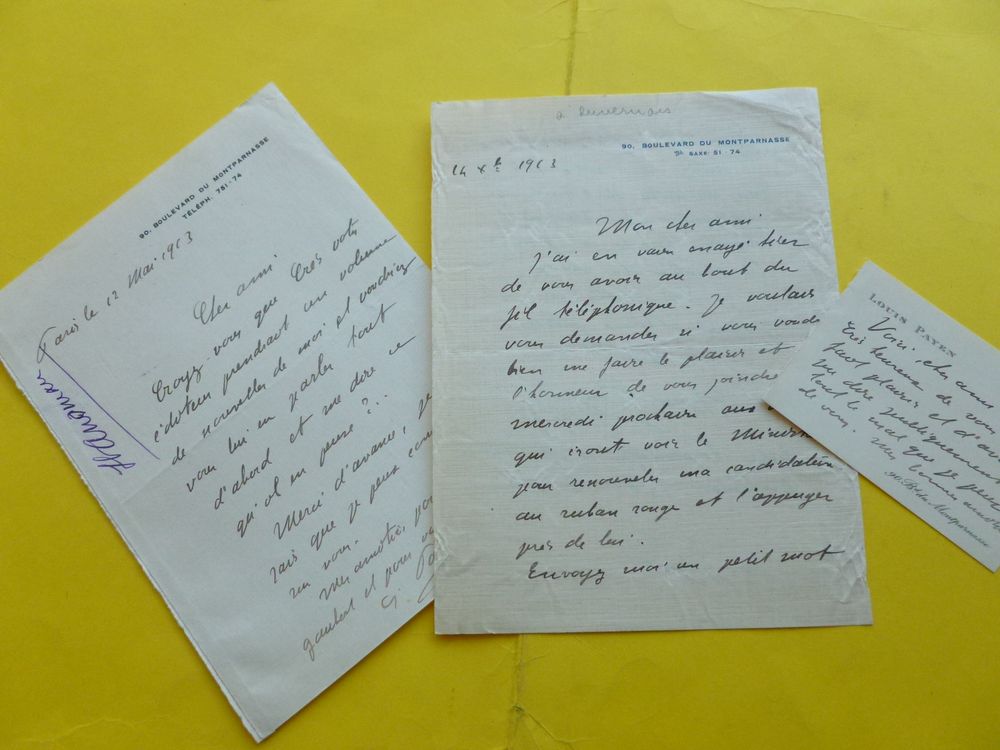 90, BOULEVARD DU MONTPARNASSE
TÉLÉPH. 751-74
Paris le 12 Mai 1913
Cher ami
Croyez-vous que très votre
éditeur prendrait un volume
de nouvelles de moi et voudriez
vous lui en parler tout
d'abord et me dire ce
qu'il en pense ?..
Merci d'avance, je
sais que je peux com
sur vous.
Mes amitiés, pour
et pour
G.
à Duvernois
90, BOULEVARD DU MONTPARNASSE
SAXE 51 74
14 Xbre 1913
Mon cher ami
J'ai en vain essayé hier
de vous avoir au bout du
fil téléphonique. Je voulais
vous demander si vous voudr
bien me faire le plaisir et
l'honneur de vous joindre
mercredi prochain aux
qui iront voir le Ministre
pour renouveler ma candidature
au ruban rouge et l'appuyer
près de lui.
Envoyez moi un petit mot
LOUIS PAYEN
Voici, cher ami
très heureux de vous
faire plaisir et d'avoir
pu dire publiquement
tout le mal que je pense
de vous. mes bonnes amitiés
90, Bd du Montparnasse